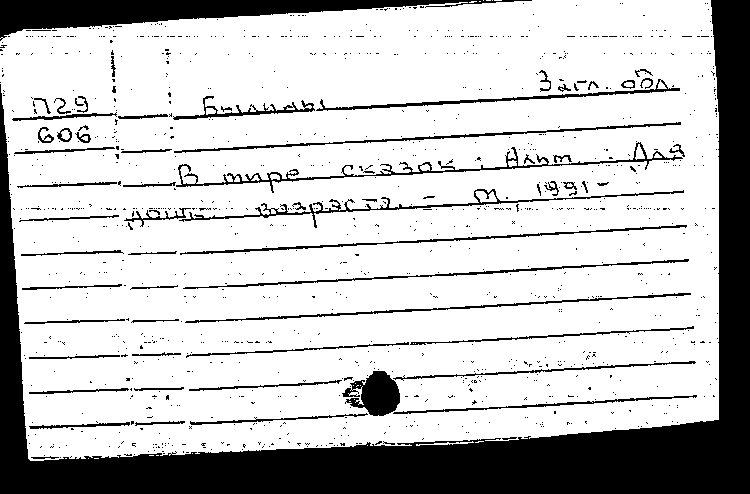 Загл. обл.
П29 Былины
606
В мире сказок : Альт. : Для
дошк. возраста. - М., 1991-